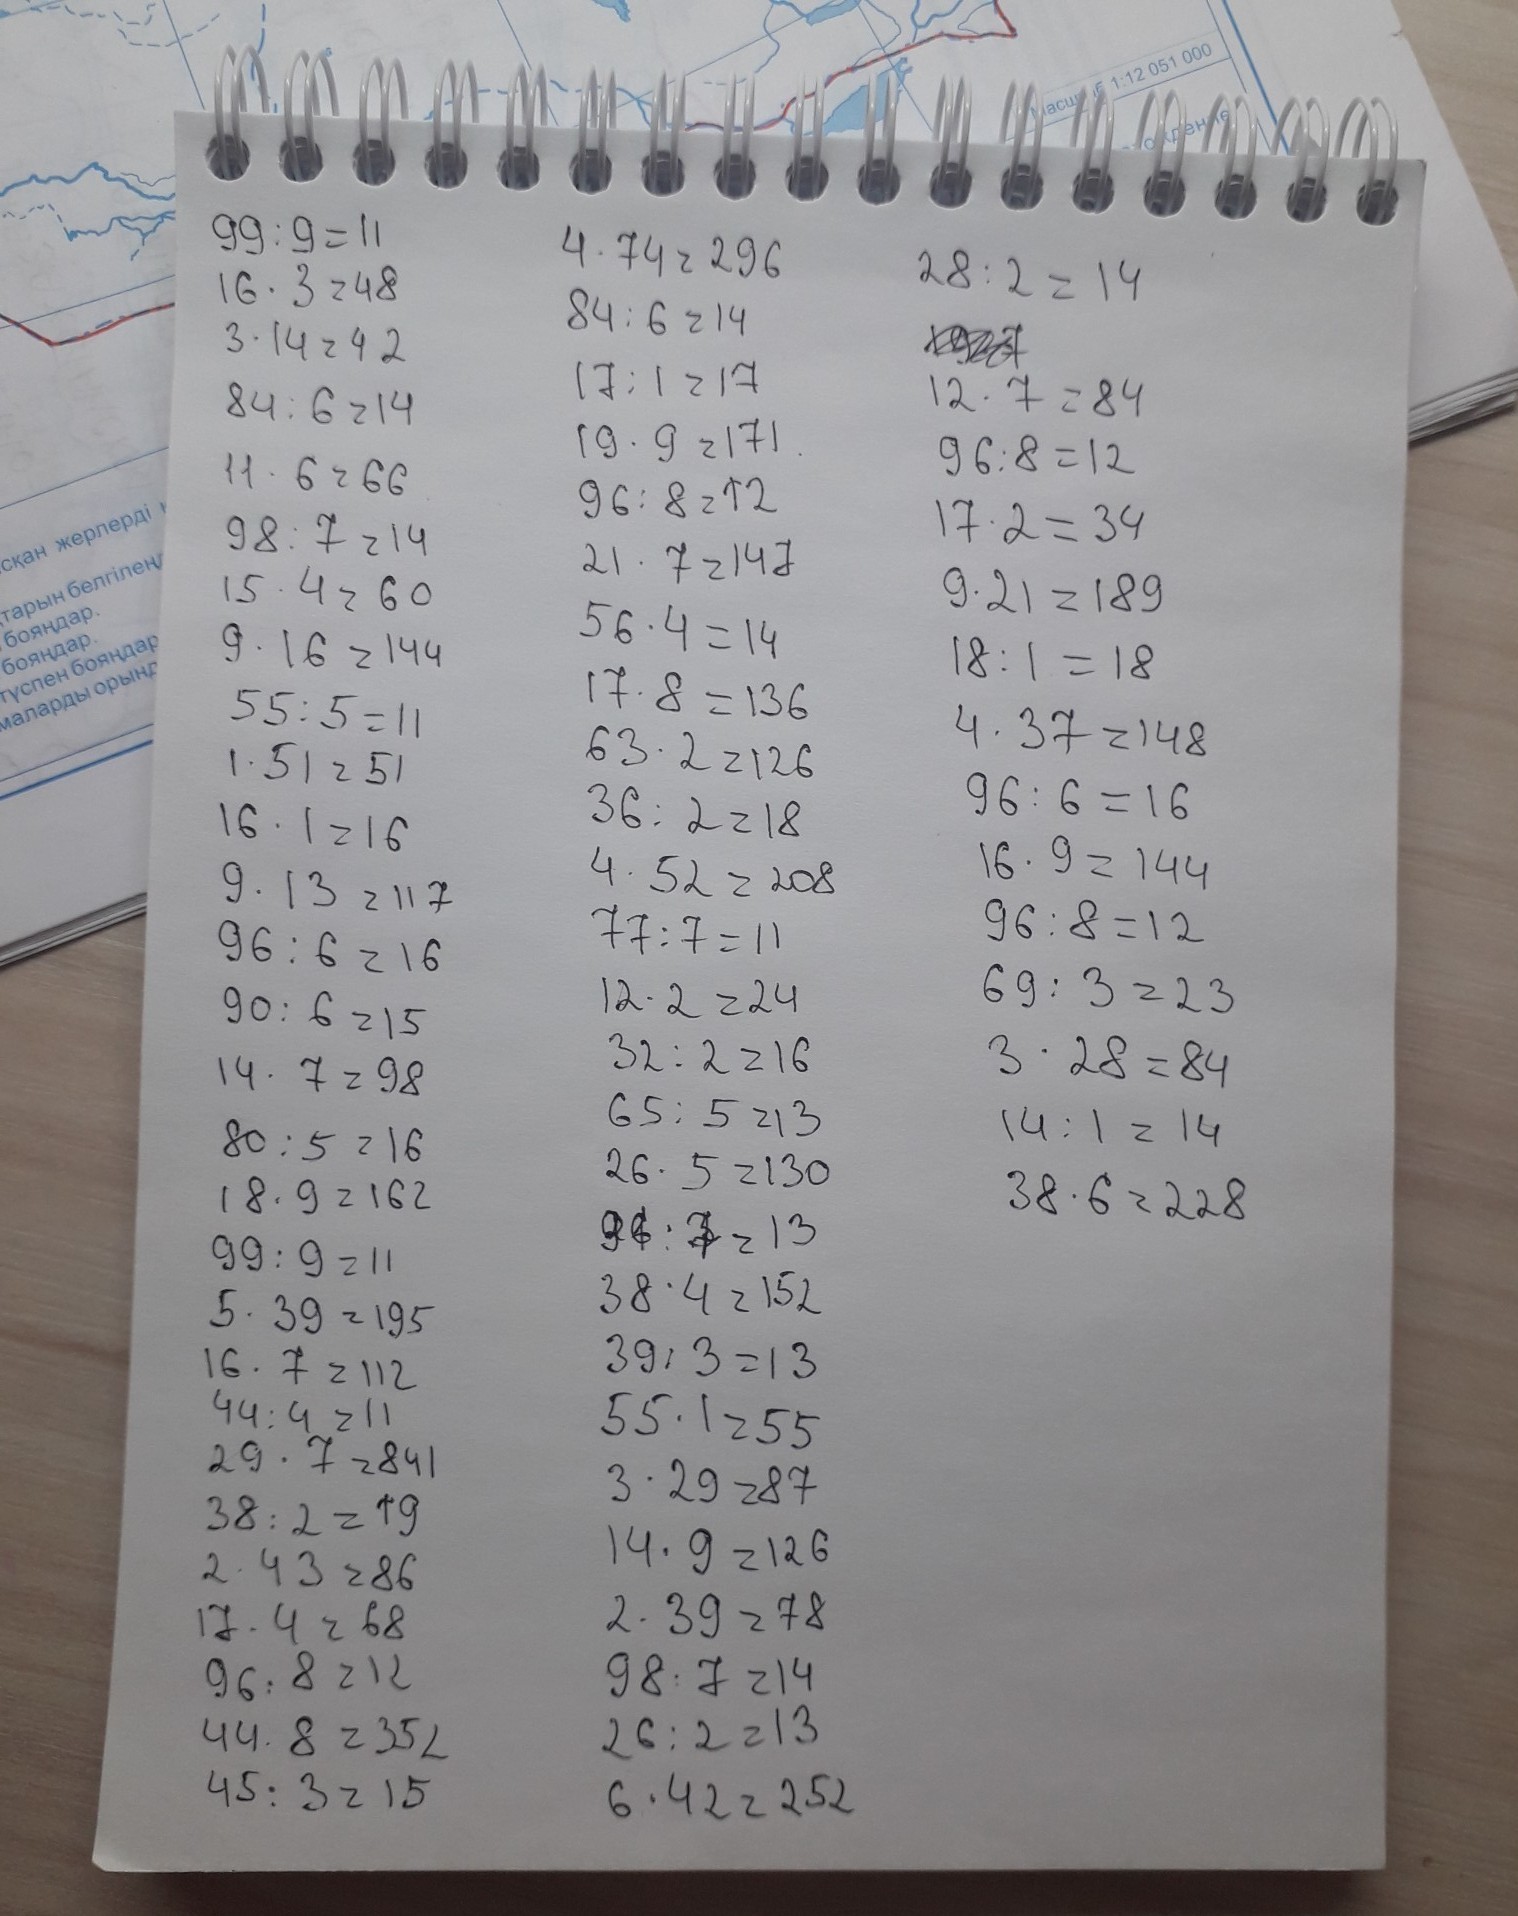 Масштаб 1:12 051 000
сқан жерлерді
тарын белгілең
бояңдар.
бояңдар.
түспен бояңдар
маларды орынд
99:9=11
16·3=48
3·14=42
84:6=14
11·6=66
98:7=14
15·4=60
9·16=144
55:5=11
1·51=51
16·1=16
9·13=117
96:6=16
90:6=15
14·7=98
80:5=16
18·9=162
99:9=11
5·39=195
16·7=112
44:4=11
29·7=841
38:2=19
2·43=86
17·4=68
96:8=12
44·8=352
45:3=15
4·74=296
84:6=14
17:1=17
19·9=171
96:8=12
21·7=147
56·4=14
17·8=136
63·2=126
36:2=18
4·52=208
77:7=11
12·2=24
32:2=16
65:5=13
26·5=130
91:7=13
38·4=152
39:3=13
55·1=55
3·29=87
14·9=126
2·39=78
98:7=14
26:2=13
6·42=252
28:2=14
12·7=84
96:8=12
17·2=34
9·21=189
18:1=18
4·37=148
96:6=16
16·9=144
96:8=12
69:3=23
3·28=84
14:1=14
38·6=228